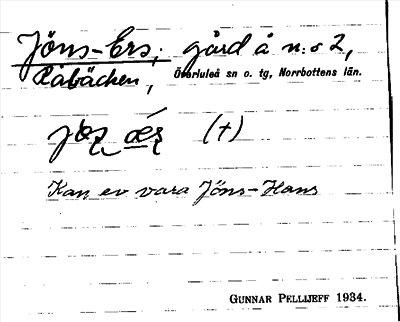 Jöns-Ers, gård å n:o 2,
Råbäcken, Överluleå sn o. tg, Norrbottens län.
(+)
Kan ev vara Jöns-Hans
GUNNAR PELLIJEFF 1934.